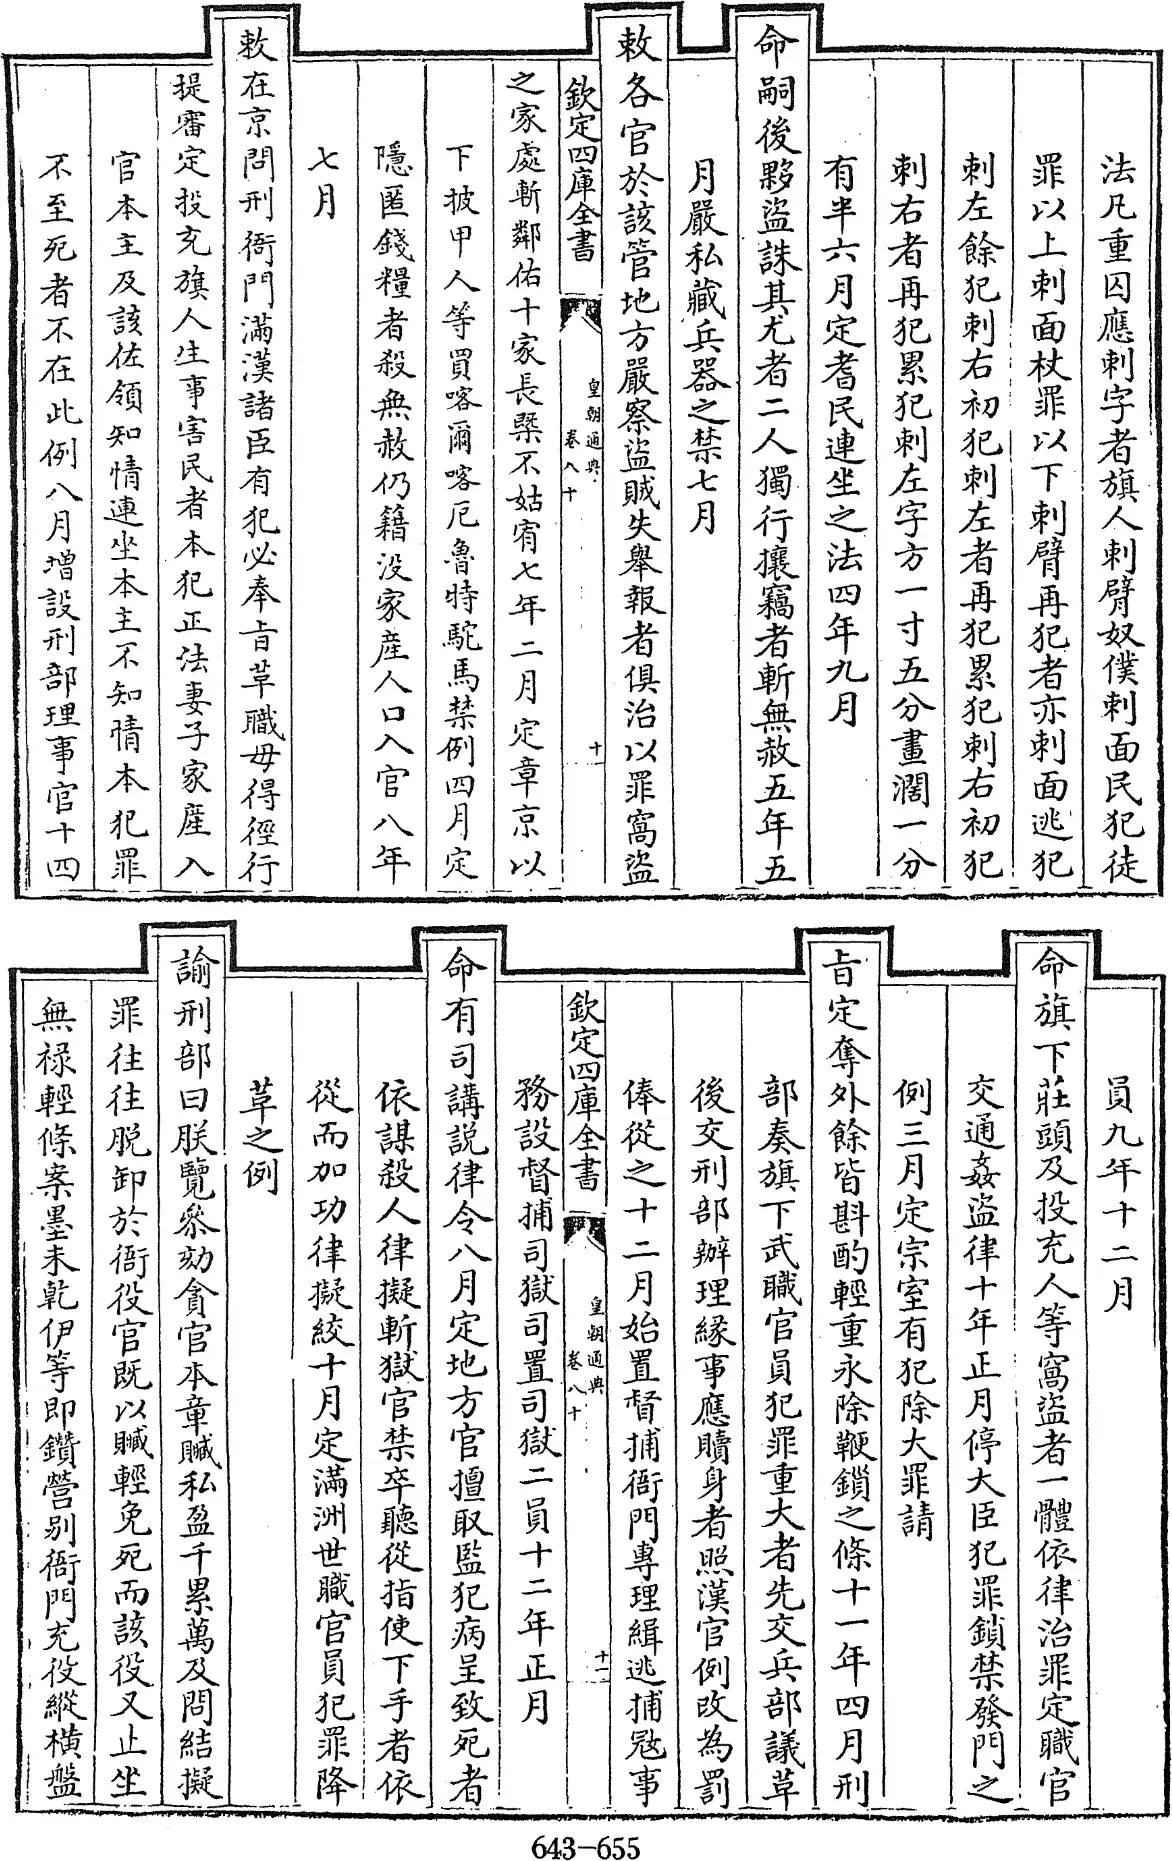 法凡重囚應刺字者旗人刺臂奴僕刺面民犯徒
罪以上刺面杖罪以下刺臂再犯者亦刺面逃犯
刺左餘犯刺右初犯刺左者再犯累犯刺右初犯
刺右者再犯累犯刺左字方一寸五分畫濶一分
有半六月定耆民連坐之法四年九月
命嗣後夥盜誅其尤者二人獨行攘竊者斬無赦五年五
月嚴私藏兵器之禁七月
敕各官於該管地方嚴察盜賊失舉報者俱治以罪窩盜
欽定四庫全書
皇朝通典
卷八十
十
之家處斬鄰佑十家長槩不姑宥七年二月定章京以
下披甲人等買喀爾喀厄魯特駝馬禁例四月定
隱匿錢糧者殺無赦仍籍没家産人口入官八年
七月
敕在京問刑衙門滿漢諸臣有犯必奉㫖革職毋得徑行
提審定投充旗人生事害民者本犯正法妻子家産入
官本主及該佐領知情連坐本主不知情本犯罪
不至死者不在此例八月增設刑部理事官十四
員九年十二月
命旗下莊頭及投充人等窩盜者一體依律治罪定職官
交通姦盜律十年正月停大臣犯罪鎖禁發門之
例三月定宗室有犯除大罪請
㫖定奪外餘皆斟酌輕重永除鞭鎖之條十一年四月刑
部奏旗下武職官員犯罪重大者先交兵部議革
後交刑部辦理緣事應贖身者照漢官例改為罰
俸從之十二月始置督捕衙門專理緝逃捕冦事
欽定四庫全書
皇朝通典
卷八十
十一
務設督捕司獄司置司獄二員十二年正月
命有司講說律令八月定地方官擅取監犯病呈致死者
依謀殺人律擬斬獄官禁卒聽從指使下手者依
從而加功律擬絞十月定滿洲世職官員犯罪降
革之例
諭刑部曰朕覽叅劾貪官本章贓私盈千累萬及問結擬
罪往往脫卸於衙役官既以贓輕免死而該役又止坐
無祿輕條案墨未乾伊等即鑽營別衙門充役縱橫盤
643-655